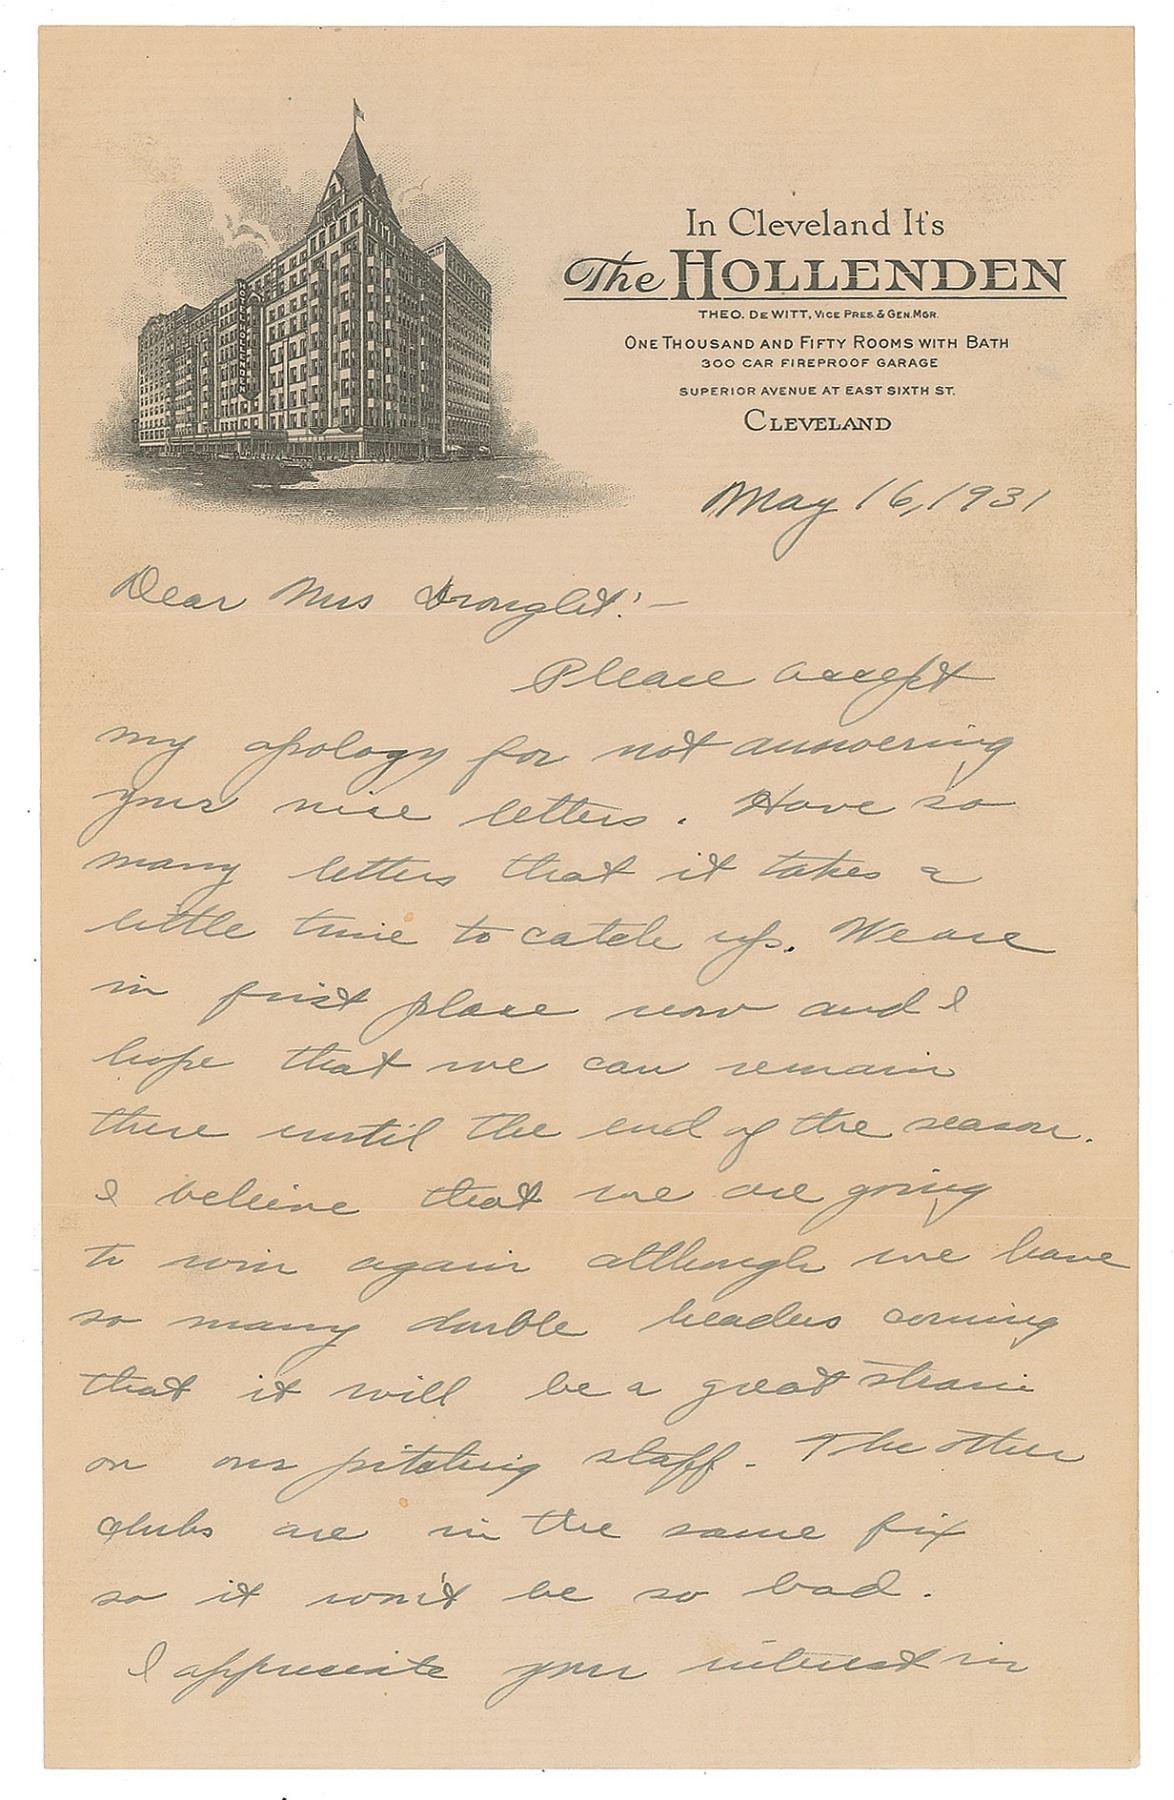 In Cleveland It's
The HOLLENDEN
THEO. DE WITT, VICE PRES. & GEN. MGR.
ONE THOUSAND AND FIFTY ROOMS WITH BATH
300 CAR FIREPROOF GARAGE
SUPERIOR AVENUE AT EAST SIXTH ST.
CLEVELAND
HOTEL HOLLENDEN
May 16, 1931
Dear Mrs Drought:—
Please accept
my apology for not answering
your nice letters. Have so
many letters that it takes a
little time to catch up. We are
in first place now and I
hope that we can remain
there until the end of the season.
I believe that we are going
to win again although we have
so many double headers coming
that it will be a great strain
on our pitching staff. The other
clubs are in the same fix
so it won't be so bad.
I appreciate your interest in